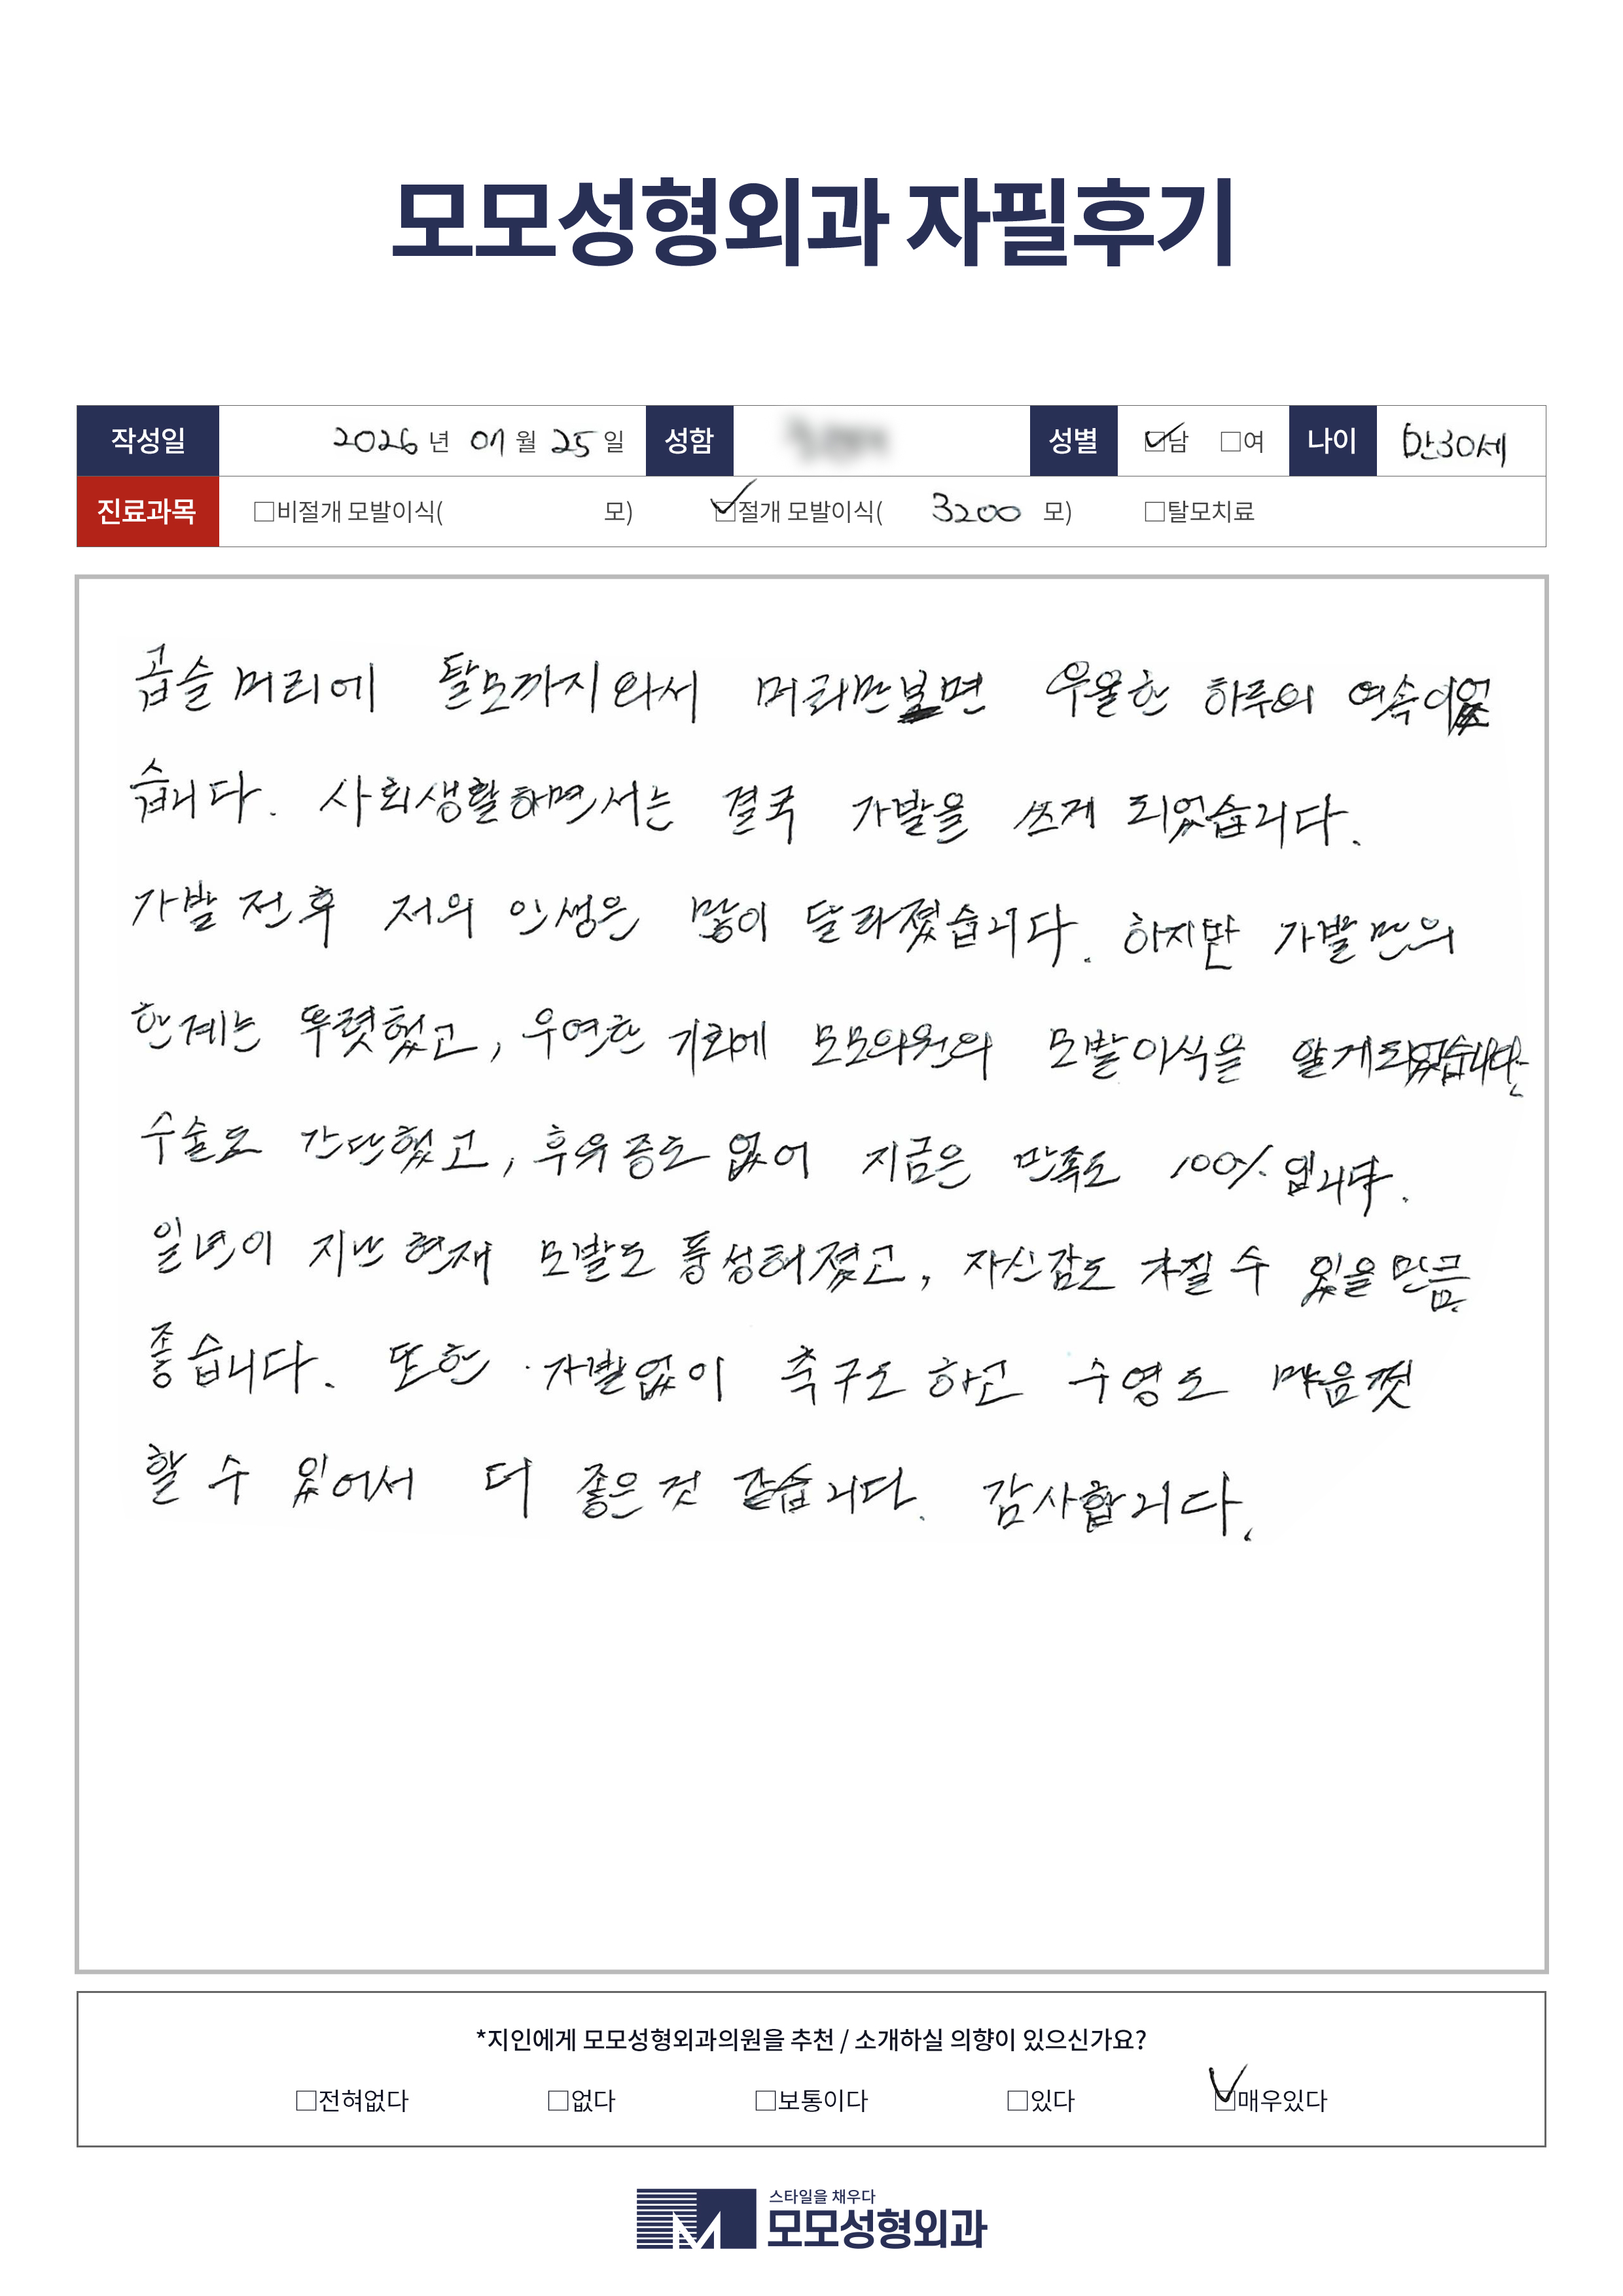 모모성형외과 자필후기
작성일 2026 년 01 월 25 일 성함 성별 ☑남 □여 나이 만30세
진료과목 □비절개 모발이식( 모) ☑절개 모발이식( 3200 모) □탈모치료
곱슬머리에 탈모까지 와서 머리만 보면 우울한 하루의 연속이었
습니다. 사회생활하면서는 결국 가발을 쓰게 되었습니다.
가발 전후 저의 인생은 많이 달라졌습니다. 하지만 가발만의
한계는 뚜렷했고, 우연한 기회에 모모의원의 모발이식을 알게되었습니다.
수술도 간단했고, 후유증도 없어 지금은 만족도 100% 입니다.
일년이 지난 현재 모발도 풍성해졌고, 자신감도 가질 수 있을만큼
좋습니다. 또한 가발없이 축구도 하고 수영도 마음껏
할 수 있어서 더 좋은 것 같습니다. 감사합니다.
*지인에게 모모성형외과의원을 추천 / 소개하실 의향이 있으신가요?
□전혀없다 □없다 □보통이다 □있다 ☑매우있다
스타일을 채우다
모모성형외과